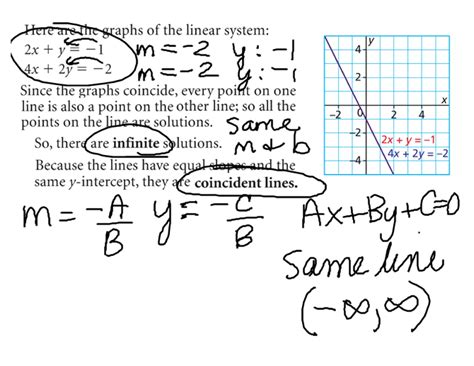 Here are the graphs of the linear system:
2x + y = −1 m = -2 y: -1
4x + 2y = −2 m = -2 y: -1
Since the graphs coincide, every point on one
line is also a point on the other line; so all the
points on the line are solutions. same
So, there are infinite solutions. m & b
Because the lines have equal slopes and the
same y-intercept, they are coincident lines.
y
4
2
x
−2 0 2 4
−2
2x + y = −1
4x + 2y = −2
−4
m = -A/B y = -C/B Ax+By+C=0
same line
(-∞,∞)